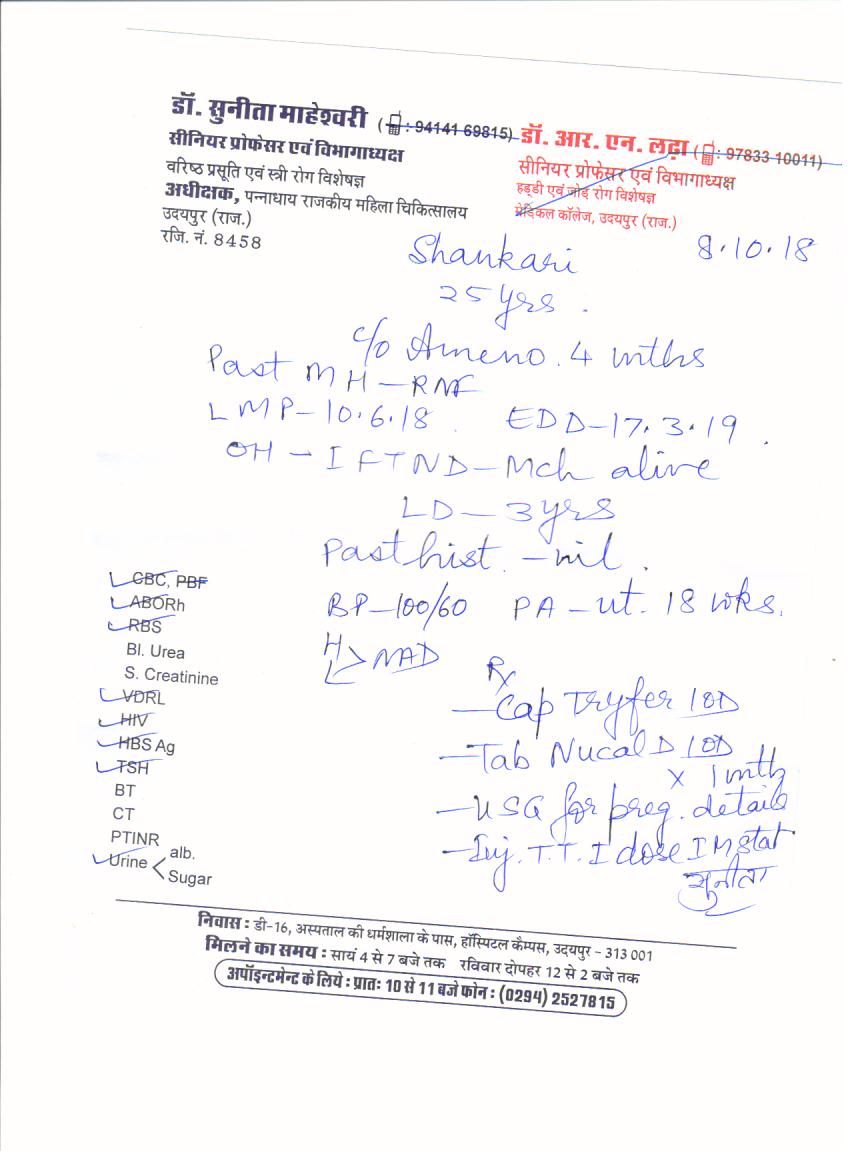 डॉ. सुनीता माहेश्वरी ( : 94141 69815)
सीनियर प्रोफेसर एवं विभागाध्यक्ष
वरिष्ठ प्रसूति एवं स्त्री रोग विशेषज्ञ
अधीक्षक, पन्नाधाय राजकीय महिला चिकित्सालय
उदयपुर (राज.)
रजि. नं. 8458
डॉ. आर. एन. लढ़ा ( : 97833 10011)
सीनियर प्रोफेसर एवं विभागाध्यक्ष
हड्डी एवं जोड़ रोग विशेषज्ञ
मेडिकल कॉलेज, उदयपुर (राज.)
8.10.18
Shankari
25 yrs.
c/o Ameno. 4 mths
Past MH - RNF
LMP - 10.6.18. EDD - 17.3.19.
OH - I FTND - Mch alive
LD - 3 yrs
Past hist. - nil.
BP - 100/60 PA - ut. 18 wks.
H
L > NAD
CBC, PBF
ABORh
RBS
Bl. Urea
S. Creatinine
VDRL
HIV
HBS Ag
TSH
BT
CT
PTINR
Urine < alb.
Sugar
Rx
- Cap Tryfer 1 OD
- Tab Nucal D 1 OD
x 1 mth
- USG for preg. details
- Inj. T.T. I dose IM stat
सुनीता
निवास : डी-16, अस्पताल की धर्मशाला के पास, हॉस्पिटल कैम्पस, उदयपुर - 313 001
मिलने का समय : सायं 4 से 7 बजे तक रविवार दोपहर 12 से 2 बजे तक
अपॉइन्टमेन्ट के लिये : प्रातः 10 से 11 बजे फोन : (0294) 2527815